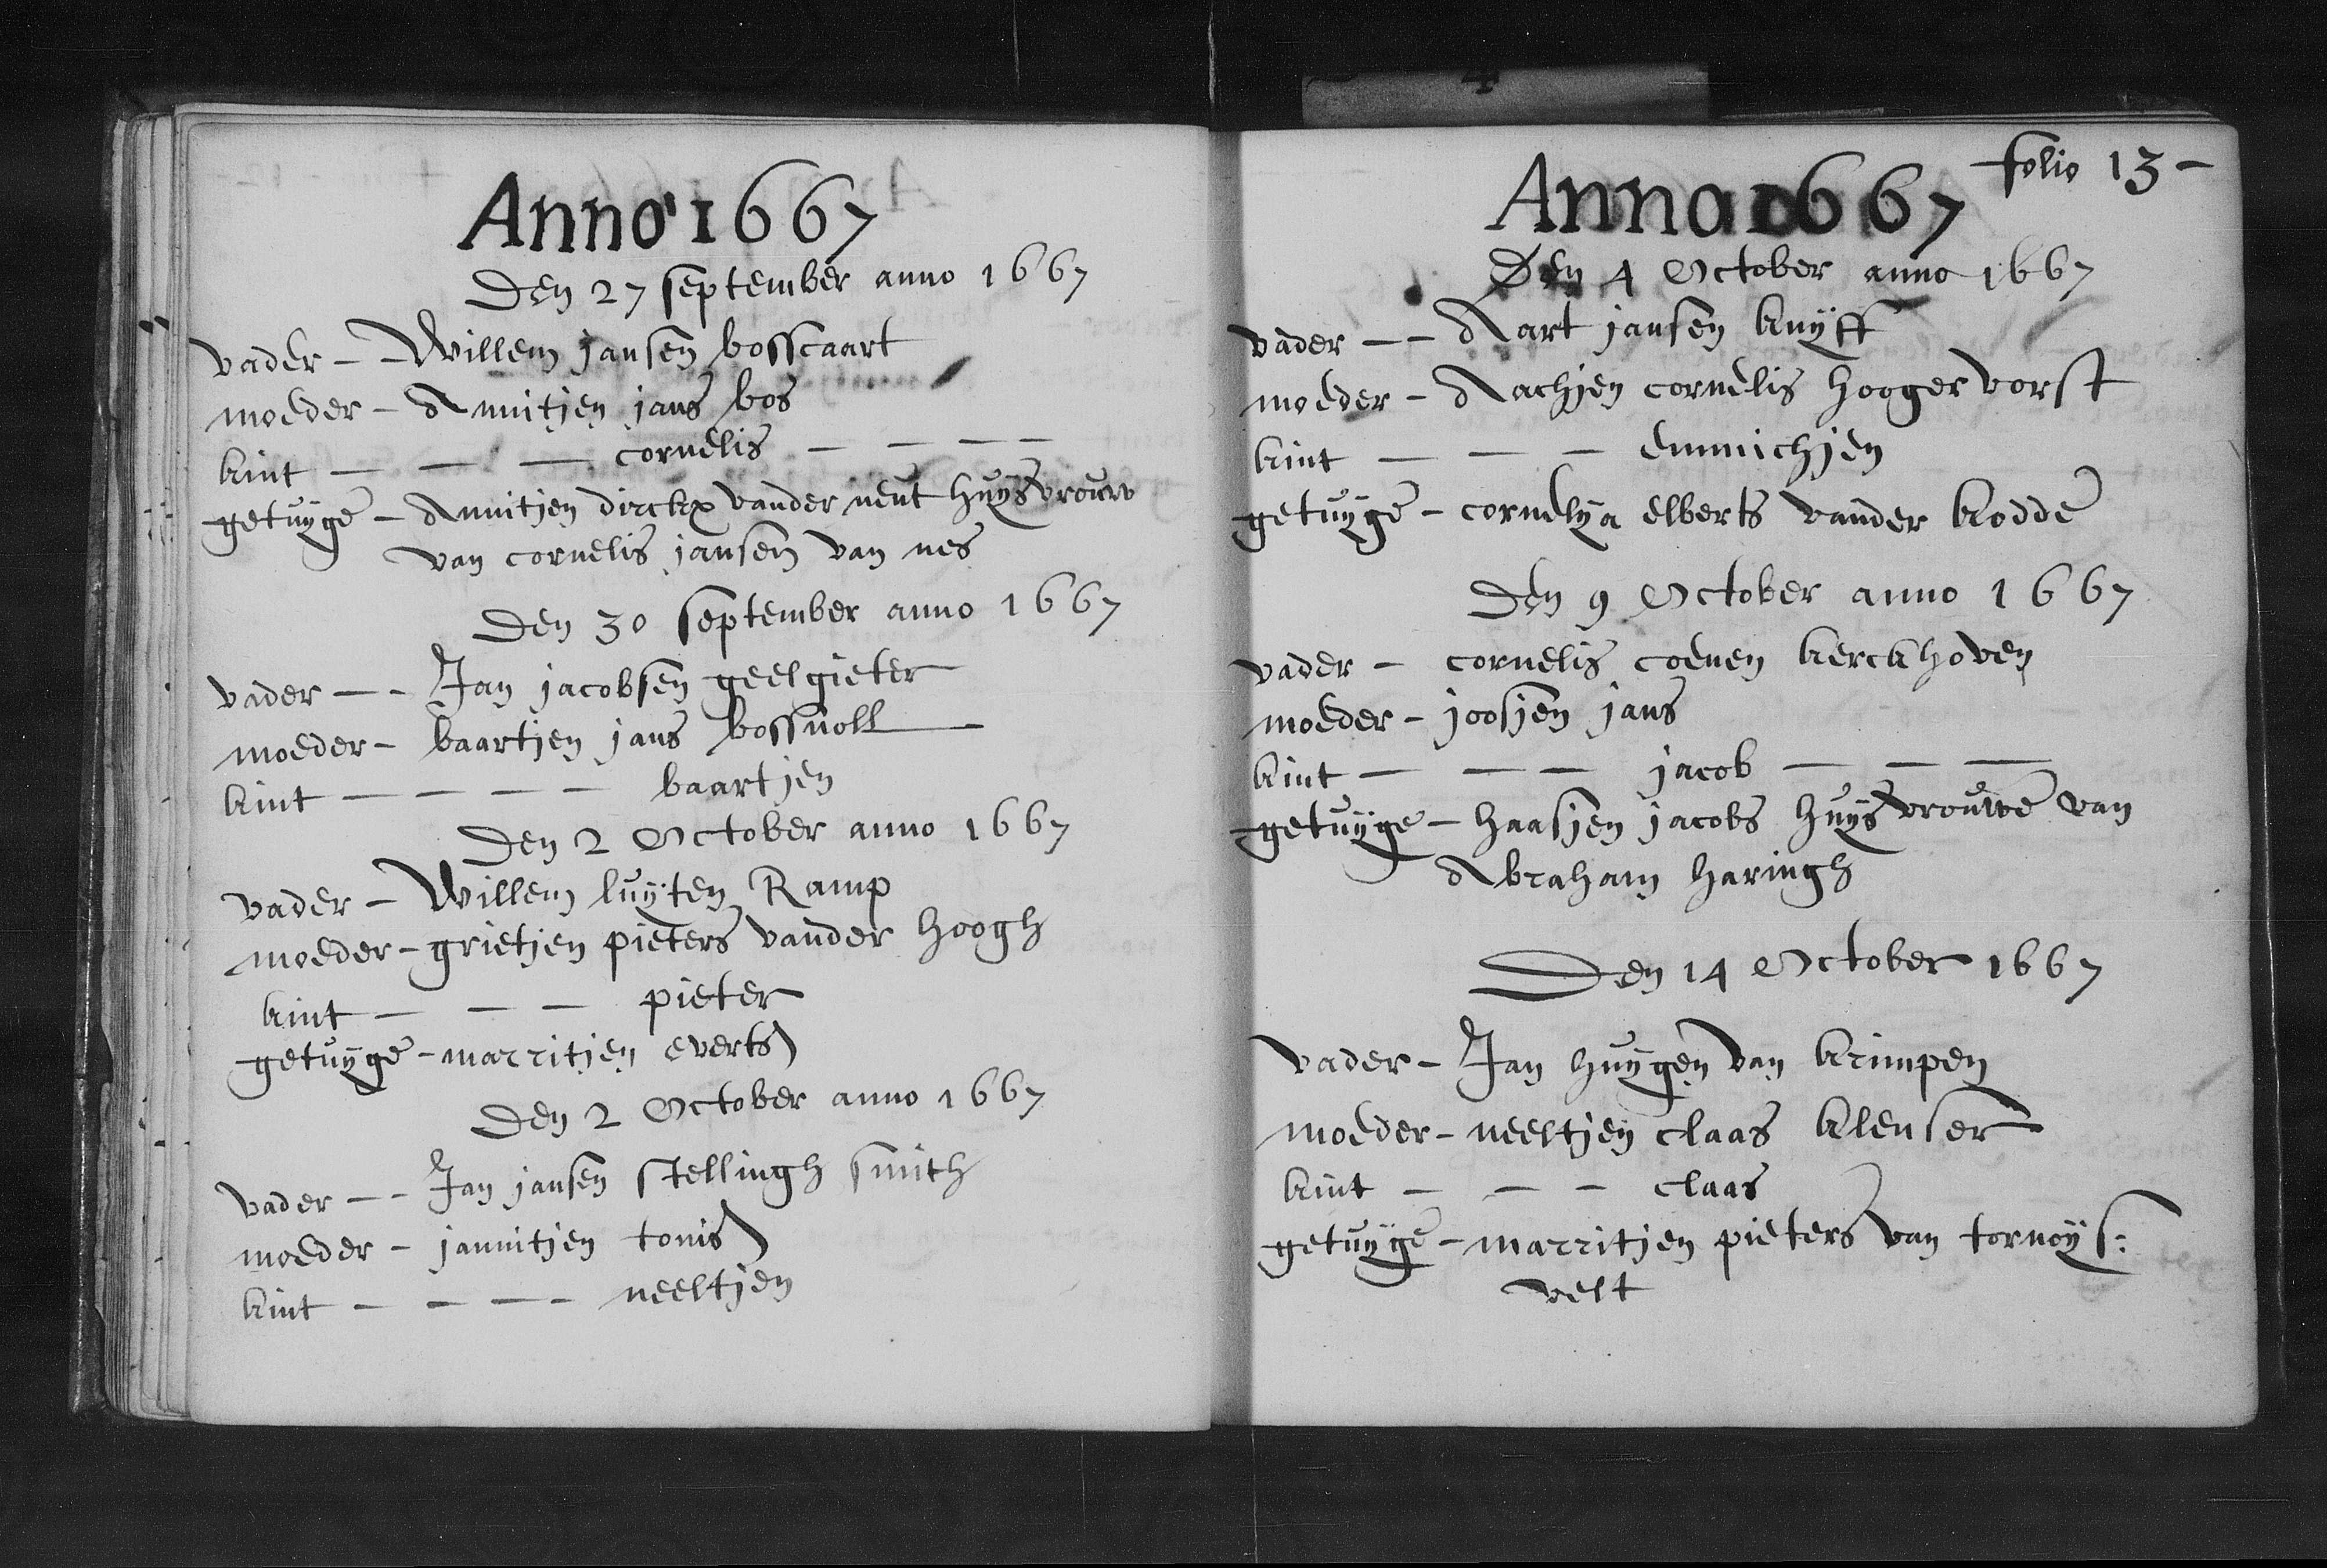 Anno 1667
Den 27 september anno 1667
vader - Willem jansen bosscaart
moeder - Annitjen jans bos
kint - - - cornelis - - - -
getuyge - Annitjen dirckx vander neut huysvrouw
van cornelis jansen van nes
Den 30 september anno 1667
vader - - Jan jacobsen geelgieter
moeder - baartjen jans bossnoll
kint - - - - baartjen
Den 2 October anno 1667
vader - Willem luyten Ramp
moeder - grietjen pieters vander hoogh
kint - - - pieter
getuyge - marritjen everts
Den 2 October anno 1667
vader - - Jan jansen stellingh smith
moeder - jannitjen tonis
kint - - - - neeltjen
folio 13 -
Anno 1667
Den 4 October anno 1667
vader - - Aart jansen knyff
moeder - Aachjen cornelis hoogervorst
kint - - - emmichjen
getuyge - cornelya elberts vander kodde
Den 9 October anno 1667
vader - cornelis coenen kerckhoven
moeder - joosjen jans
kint - - - jacob - - -
getuyge - haasjen jacobs huysvrouwe van
Abraham haringh
Den 14 October 1667
vader - Jan huygen van krimpen
moeder - neeltjen claas klenser
kint - - - claas
getuyge - marritjen pieters van tornoys:
velt